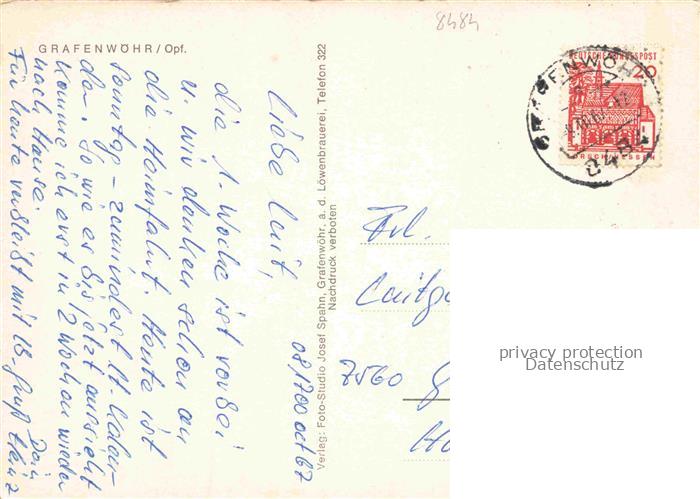 8484
GRAFENWÖHR/Opf.
DEUTSCHE BUNDESPOST
20
LORSCH/HESSEN
GRAFENWÖHR
8484
08,1700 Oct 67
Liebe Leut,
die 1. Woche ist vorbei
u. wir denken schon an
die Heimfahrt. Heute ist
Sonntag – zumindest lt. Kalen-
der. So wie es bis jetzt aussieht
komme ich erst in 2 Wochen wieder
nach Hause.
Für heute verbleibt mit lb. Gruß
Dein
Heinz
Verlag: Foto-Studio Josef Spahn, Grafenwöhr, a. d. Löwenbrauerei, Telefon 322
Nachdruck verboten
Frl.
7560
privacy protection
Datenschutz